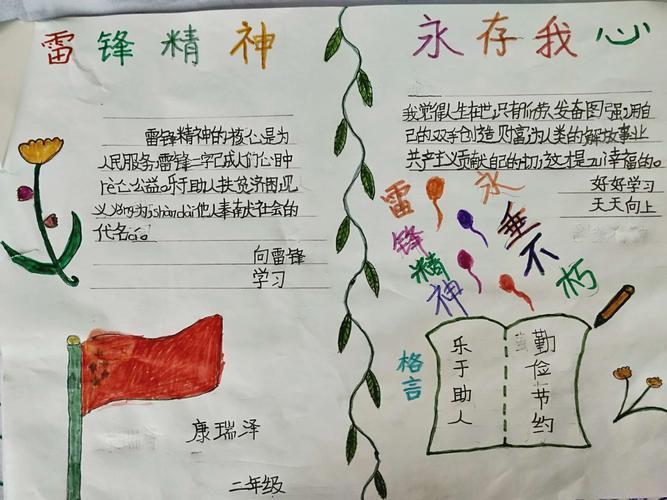 雷锋精神
永存我心
雷锋精神的核心是为
人民服务。雷锋一字已成人们心目中
rè心公益。乐于助人扶贫济困。见
义yǒng为、shàn dài他人奉献社会的
代名cí。
向雷锋
学习
我觉得人生在世,只有勤劳、发奋图强,用自
己的双手创造财富,为人类的解放事业
共产主义贡献自己的一切,这才是
幸福的。
好好学习
天天向上
雷锋精神
永垂不朽
格言
乐于助人
勤俭节约
康瑞泽
二年级